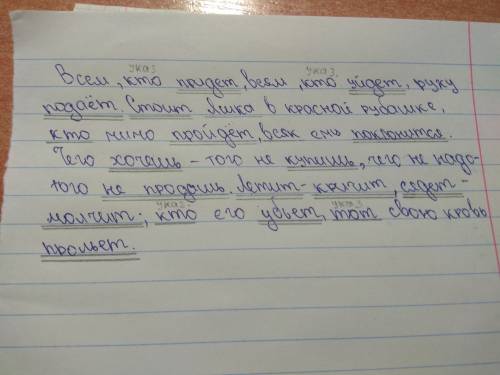 указ. указ.
Всем, кто придет, всем, кто уйдет, руку
подаёт. Стоит Яшка в красной рубашке,
кто мимо пройдёт, всяк ему поклонится.
Чего хочешь – того не купишь, чего не надо-
того не продашь. Летит- кричит, сядет -
указ. указ.
молчит; кто его убьет, тот свою кровь
прольет.